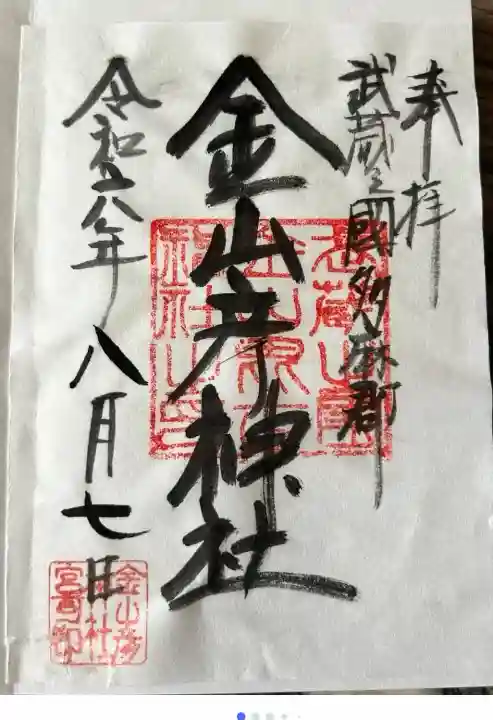 奉拝
武蔵之國多麻郡
金山彦神社
令和六年 八月七日
金山彦
神社
宮司印